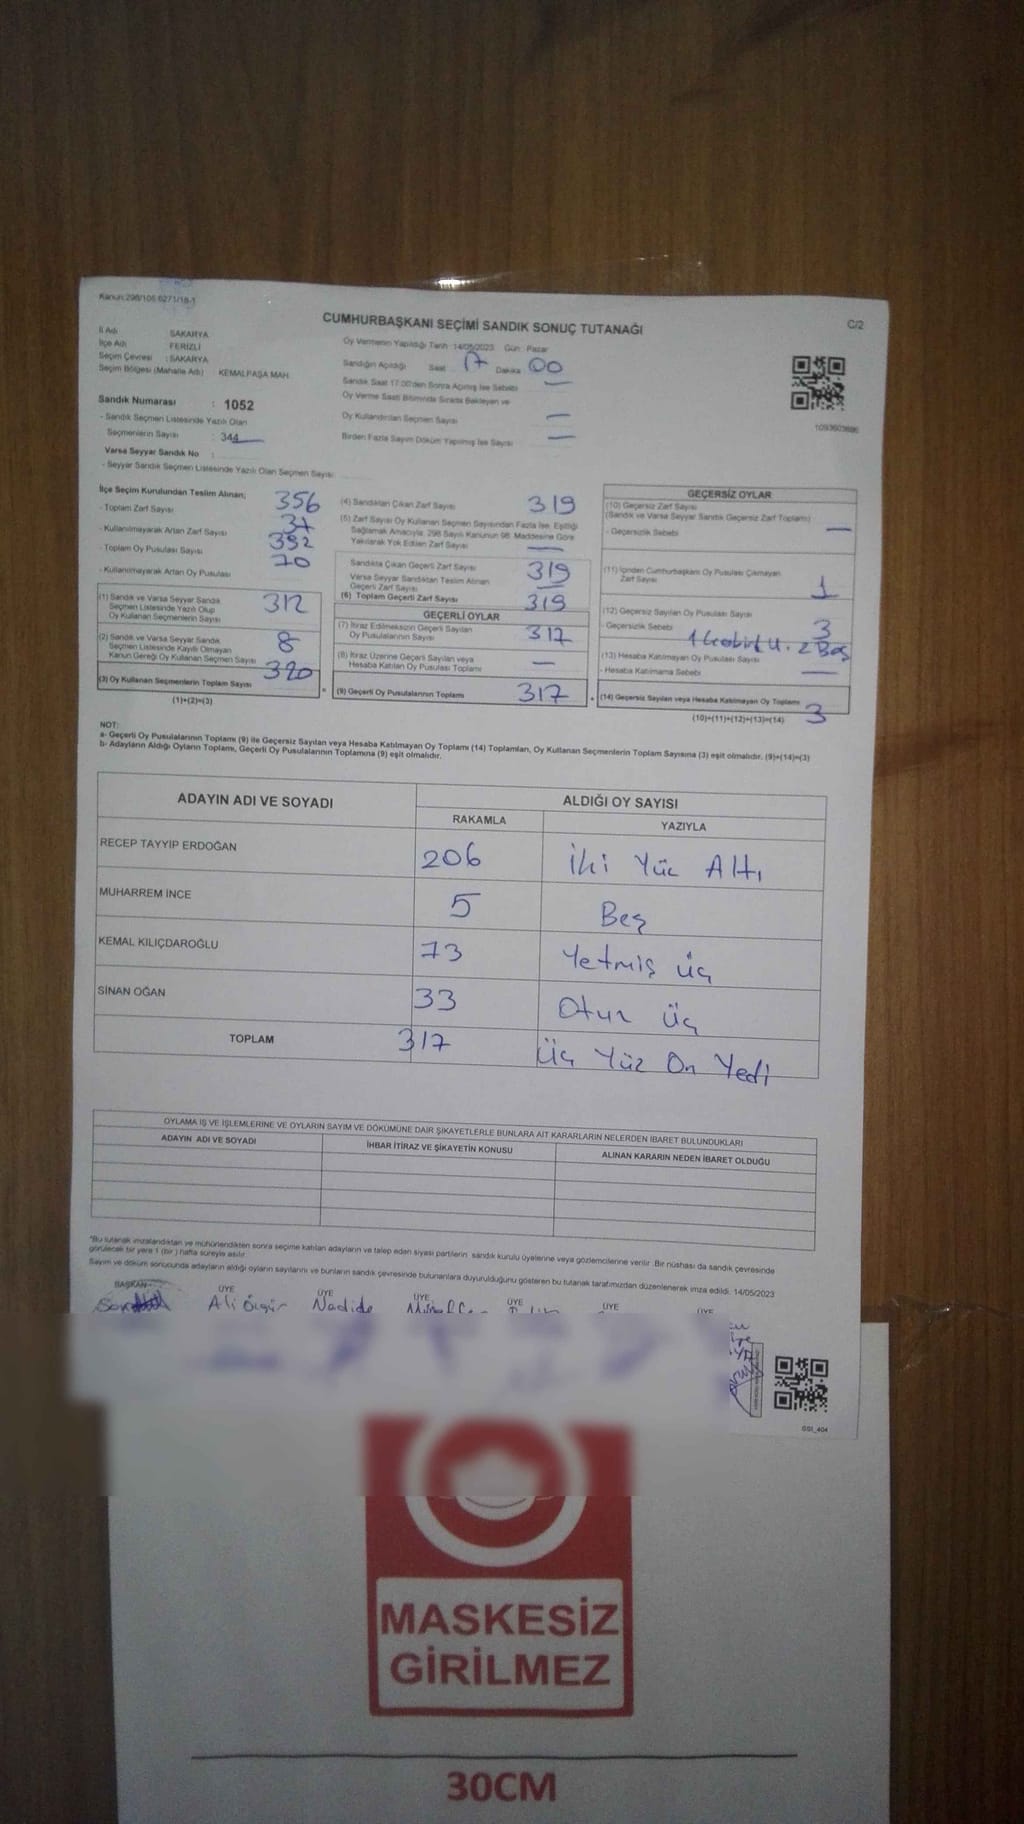 Kanun:298/105 6271/18-1
CUMHURBAŞKANI SEÇİMİ SANDIK SONUÇ TUTANAĞI
C/2
İl Adı SAKARYA
İlçe Adı FERİZLİ
Seçim Çevresi : SAKARYA
Seçim Bölgesi (Mahalle Adı) KEMALPAŞA MAH.
Sandık Numarası : 1052
- Sandık Seçmen Listesinde Yazılı Olan
Seçmenlerin Sayısı : 344
Varsa Seyyar Sandık No :
- Seyyar Sandık Seçmen Listesinde Yazılı Olan Seçmen Sayısı
Oy Vermenin Yapıldığı Tarih 14/05/2023 Gün: Pazar
Sandığın Açıldığı Saat 17 Dakika 00
Sandık Saat 17:00'den Sonra Açılmış İse Sebebi —
Oy Verme Saati Bitiminde Sırada Bekleyen ve
Oy Kullandırılan Seçmen Sayısı —
Birden Fazla Sayım Döküm Yapılmış İse Sayısı —
İlçe Seçim Kurulundan Teslim Alınan;
- Toplam Zarf Sayısı 356
- Kullanılmayarak Artan Zarf Sayısı 37
- Toplam Oy Pusulası Sayısı 392
- Kullanılmayarak Artan Oy Pusulası 70
(1) Sandık ve Varsa Seyyar Sandık
Seçmen Listesinde Yazılı Olup
Oy Kullanan Seçmenlerin Sayısı 312
(2) Sandık ve Varsa Seyyar Sandık
Seçmen Listesinde Kayıtlı Olmayan
Kanun Gereği Oy Kullanan Seçmen Sayısı 8
(3) Oy Kullanan Seçmenlerin Toplam Sayısı 320
(1)+(2)=(3)
(4) Sandıktan Çıkan Zarf Sayısı 319
(5) Zarf Sayısı Oy Kullanan Seçmen Sayısından Fazla İse, Eşitliği
Sağlamak Amacıyla; 298 Sayılı Kanunun 98. Maddesine Göre
Yakılarak Yok Edilen Zarf Sayısı —
Sandıkta Çıkan Geçerli Zarf Sayısı 319
Varsa Seyyar Sandıktan Teslim Alınan
Geçerli Zarf Sayısı —
(6) Toplam Geçerli Zarf Sayısı 319
GEÇERLİ OYLAR
(7) İtiraz Edilmeksizin Geçerli Sayılan
Oy Pusulalarının Sayısı 317
(8) İtiraz Üzerine Geçerli Sayılan veya
Hesaba Katılan Oy Pusulası Toplamı —
(9) Geçerli Oy Pusulalarının Toplamı 317
1093603886
GEÇERSİZ OYLAR
(10) Geçersiz Zarf Sayısı
(Sandık ve Varsa Seyyar Sandık Geçersiz Zarf Toplamı) —
- Geçersizlik Sebebi
(11) İçinden Cumhurbaşkanı Oy Pusulası Çıkmayan
Zarf Sayısı 1
(12) Geçersiz Sayılan Oy Pusulası Sayısı 3
- Geçersizlik Sebebi 2 Boş
(13) Hesaba Katılmayan Oy Pusulası Sayısı —
- Hesaba Katılmama Sebebi
(14) Geçersiz Sayılan veya Hesaba Katılmayan Oy Toplamı 3
(10)+(11)+(12)+(13)=(14)
NOT:
a- Geçerli Oy Pusulalarının Toplamı (9) ile Geçersiz Sayılan veya Hesaba Katılmayan Oy Toplamı (14) Toplamları, Oy Kullanan Seçmenlerin Toplam Sayısına (3) eşit olmalıdır. (9)+(14)=(3)
b- Adayların Aldığı Oyların Toplamı, Geçerli Oy Pusulalarının Toplamına (9) eşit olmalıdır.
ADAYIN ADI VE SOYADI ALDIĞI OY SAYISI
RAKAMLA YAZIYLA
RECEP TAYYİP ERDOĞAN 206 İki Yüz Altı
MUHARREM İNCE 5 Beş
KEMAL KILIÇDAROĞLU 73 Yetmiş üç
SİNAN OĞAN 33 Otuz üç
TOPLAM 317 Üç Yüz On Yedi
OYLAMA İŞ VE İŞLEMLERİNE VE OYLARIN SAYIM VE DÖKÜMÜNE DAİR ŞİKAYETLERLE BUNLARA AİT KARARLARIN NELERDEN İBARET BULUNDUKLARI
ADAYIN ADI VE SOYADI İHBAR İTİRAZ VE ŞİKAYETİN KONUSU ALINAN KARARIN NEDEN İBARET OLDUĞU
*Bu tutanak imzalandıktan ve mühürlendikten sonra seçime katılan adayların ve talep eden siyasi partilerin sandık kurulu üyelerine veya gözlemcilerine verilir. Bir nüshası da sandık çevresinde
görülecek bir yere 1 (bir) hafta süreyle asılır.
Sayım ve döküm sonucunda adayların aldığı oyların sayılarını ve bunların sandık çevresinde bulunanlara duyurulduğunu gösteren bu tutanak tarafımızdan düzenlenerek imza edildi. 14/05/2023
BAŞKAN ÜYE ÜYE ÜYE ÜYE ÜYE ÜYE
Ali Özgür Nadide
GSI_404
MASKESİZ
GİRİLMEZ
30CM